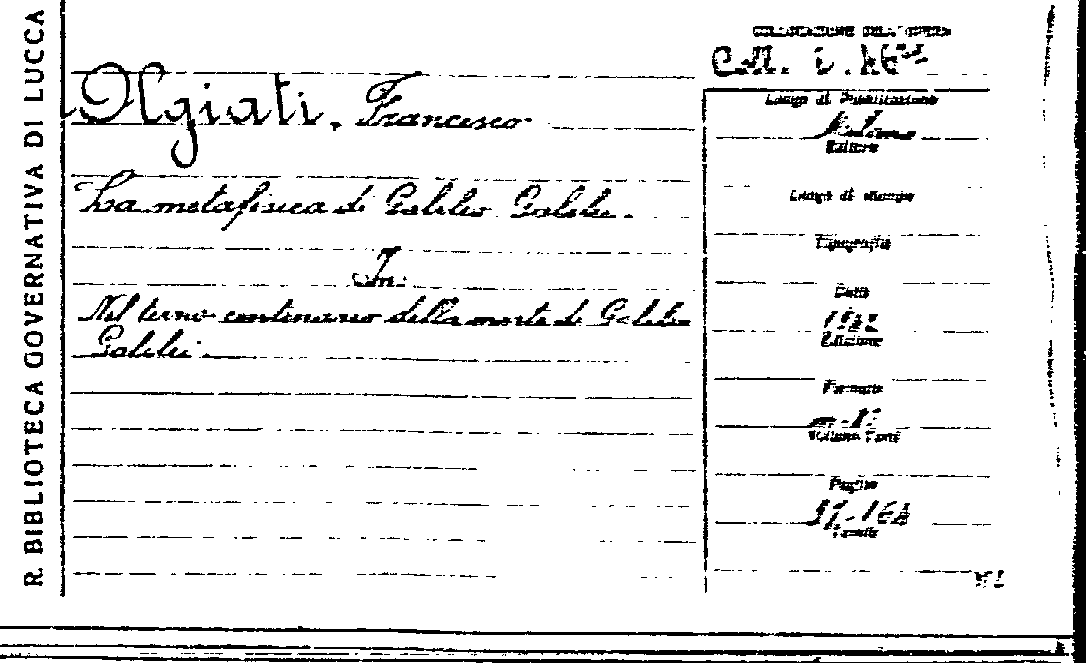 R. BIBLIOTECA GOVERNATIVA DI LUCCA
Olgiati, Francesco
La metafisica di Galileo Galilei.
In:
Nel terzo centenario della morte di Galileo
Galilei.
COLLOCAZIONE DELL'OPERA
Luogo di Pubblicazione
Milano
Editore
Luogo di stampa
Tipografia
Data
1942
Edizione
Formato
Volume Tomi
Pagine